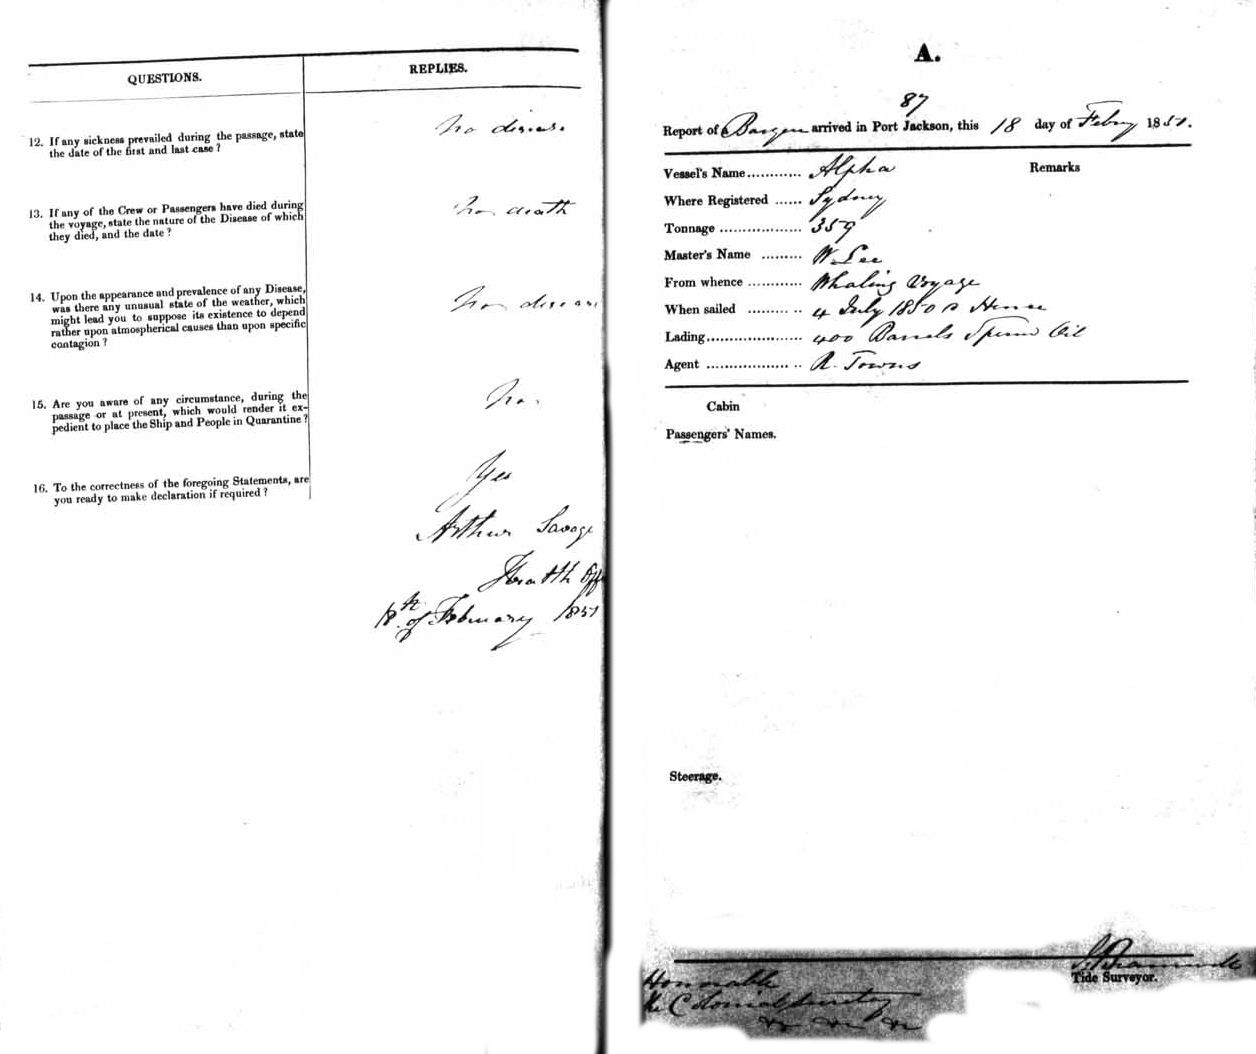 QUESTIONS.
REPLIES.
12. If any sickness prevailed during the passage, state
the date of the first and last case ?
No disease
13. If any of the Crew or Passengers have died during
the voyage, state the nature of the Disease of which
they died, and the date ?
No death
14. Upon the appearance and prevalence of any Disease,
was there any unusual state of the weather, which
might lead you to suppose its existence to depend
rather upon atmospherical causes than upon specific
contagion ?
No disease
15. Are you aware of any circumstance, during the
passage or at present, which would render it ex-
pedient to place the Ship and People in Quarantine ?
No.
16. To the correctness of the foregoing Statements, are
you ready to make declaration if required ?
Yes
Arthur Savage
Health Off
18th of February 1851
A.
87
Report of Barque arrived in Port Jackson, this 18 day of Febry 1851.
Vessel's Name............ Alpha
Remarks
Where Registered ...... Sydney
Tonnage .................. 359
Master's Name ......... W. Lee
From whence ............ Whaling Voyage
When sailed ........... 4 July 1850 Hence
Lading..................... 400 Barrels Sperm Oil
Agent ..................... R. Towns
Cabin
Passengers' Names.
Steerage.
Tide Surveyor.
Honorable
the Colonial Secretary